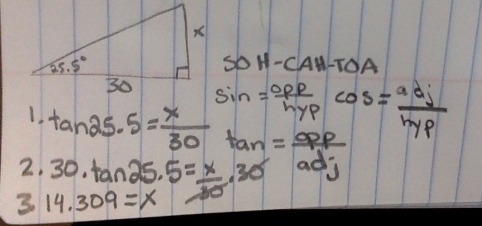 x
25.5°
30
SOH-CAH-TOA
sin = opp/hyp cos = adj/hyp
1. tan25.5 = x/30
tan = opp/adj
2. 30 · tan25.5 = x/30 · 30
3. 14.309 = x